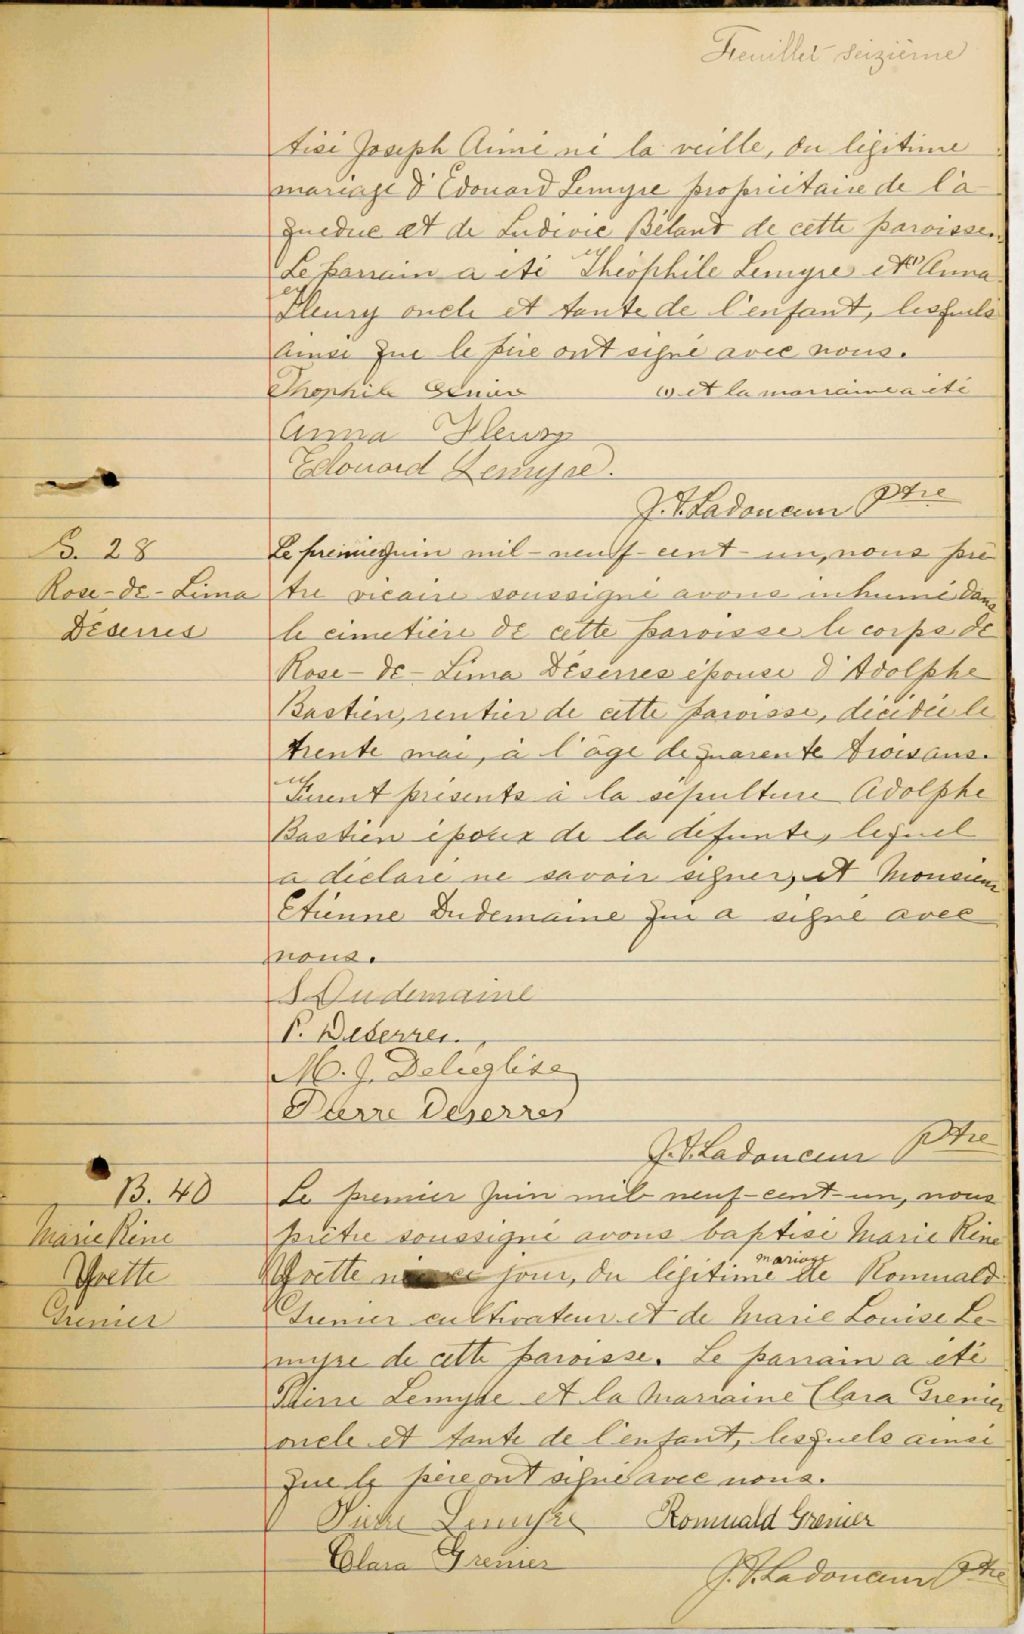 Feuillet seizième
tisé Joseph Aimé né la veille, du légitime
mariage d'Edouard Lemyre propriétaire de l'a-
queduc et de Ludivic Béland de cette paroisse.
Le parrain a été Théophile Lemyre et (1) Anna
Fleury oncle et tante de l'enfant, lesquels
ainsi que le père ont signé avec nous.
Thophile (1) et la marraine a été
Anna Fleury
Edouard Lemyre.
J. A. Ladouceur Ptre
S. 28
Rose-de-Lima
Déserres
Le premier juin mil-neuf-cent-un, nous prê-
tre vicaire soussigné avons inhumé dans
le cimetière de cette paroisse le corps de
Rose-de-Lima Déserres épouse d'Adolphe
Bastien, rentier de cette paroisse, décédée le
trente mai, à l'âge de quarente trois ans.
Furent présents à la sépulture Adolphe
Bastien époux de la défunte, lequel
a déclaré ne savoir signer, et Monsieur
Etienne Dudemaine qui a signé avec
nous.
Dudemaine
P. Deserres.
M. J. Deliéglise
Pierre Deserres
J. A. Ladouceur Ptre
B. 40
Marie Rène
Yvette
Grenier
Le premier juin mil-neuf-cent-un, nous
prêtre soussigné avons baptisé Marie Rène
Yvette née ce jour, du légitime mariage de Romuald
Grenier cultivateur et de Marie Louise Le-
myre de cette paroisse. Le parrain a été
Pierre Lemyre et la Marraine Clara Grenier
oncle et tante de l'enfant, lesquels ainsi
que le père ont signé avec nous.
Pierre Lemyre Romuald Grenier
Clara Grenier
J. A. Ladouceur Ptre